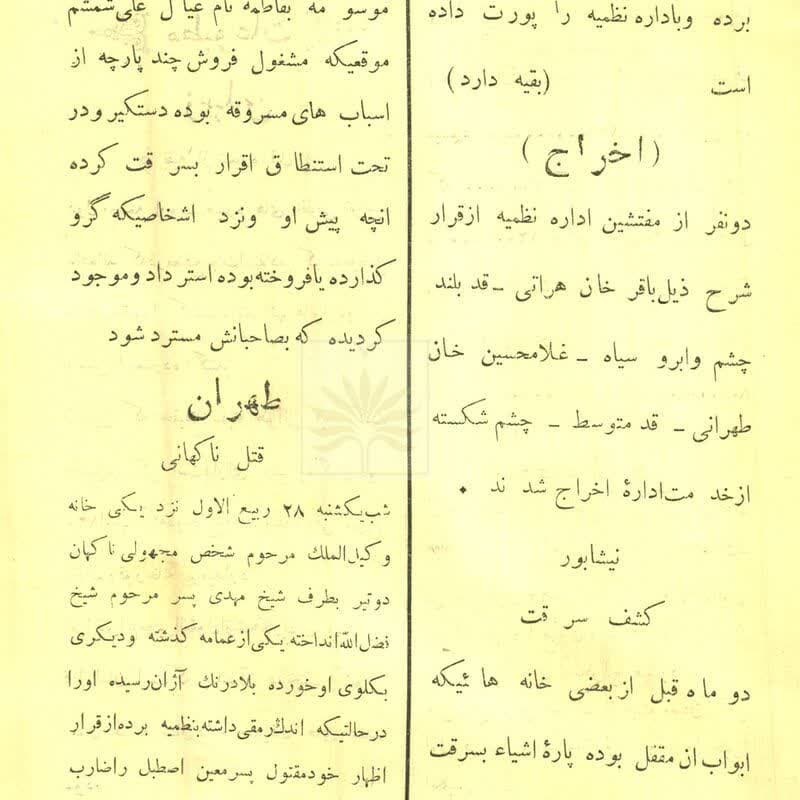 برده وباداره نظمیه را پورت داده
است (بقیه دارد)
(اخراج)
دونفر از مفتشین اداره نظمیه ازقرار
شرح ذیل باقر خان هراتی ـ قد بلند
چشم وابرو سیاه ـ غلامحسین خان
طهرانی ـ قد متوسط ـ چشم شکسته
ازخد مت ادارهٔ اخراج شد ند .
نیشابور
کشف سر قت
دو ماه قبل از بعضی خانه ها ئیکه
ابواب ان مقفل بوده پارهٔ اشیاء بسرقت
موسو مه بفاطمه نام عیال علی ششم
موقعیکه مشغول فروش چند پارچه از
اسباب های مسروقه بوده دستکیر ودر
تحت استنطا ق اقرار بسر قت کرده
انچه پیش او ونزد اشخاصیکه گرو
کذارده یافروخته بوده استر داد وموجود
کردیده که بصاحبانش مسترد شود
طهران
قتل ناکهانی
شب یکشنبه ۲۸ ربیع الاول نزد یکی خانه
وکیل الملك مرحوم شخص مجهولی ناکهان
دوتیر بطرف شیخ مهدی پسر مرحوم شیخ
فضل الله انداخته یکی از عمامه کذشته ودیکری
بکلوی اوخورده بلادرنك آژان رسیده اورا
درحالتیکه اندك رمقی داشته بنظمیه برده ازقرار
اظهار خود مقتول پسر معین اصطبل راضارب